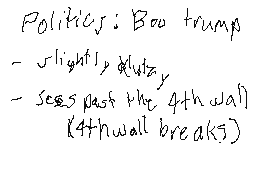 Politics: Boo trump
- slightly klutzy
- sees past the 4th wall
(4th wall breaks)